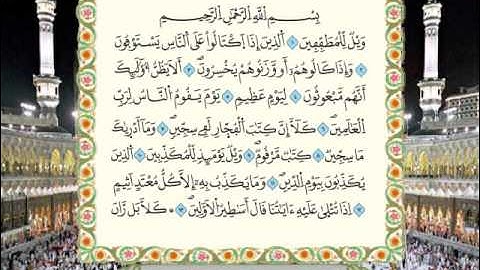 بِسْمِ اللَّهِ الرَّحْمَٰنِ الرَّحِيمِ
وَيْلٌ لِّلْمُطَفِّفِينَ ۝١ الَّذِينَ إِذَا اكْتَالُوا عَلَى النَّاسِ يَسْتَوْفُونَ
۝٢ وَإِذَا كَالُوهُمْ أَو وَّزَنُوهُمْ يُخْسِرُونَ ۝٣ أَلَا يَظُنُّ أُولَٰئِكَ
أَنَّهُم مَّبْعُوثُونَ ۝٤ لِيَوْمٍ عَظِيمٍ ۝٥ يَوْمَ يَقُومُ النَّاسُ لِرَبِّ
الْعَالَمِينَ ۝٦ كَلَّا إِنَّ كِتَابَ الْفُجَّارِ لَفِي سِجِّينٍ ۝٧ وَمَا أَدْرَاكَ
مَا سِجِّينٌ ۝٨ كِتَابٌ مَّرْقُومٌ ۝٩ وَيْلٌ يَوْمَئِذٍ لِّلْمُكَذِّبِينَ ۝١٠ الَّذِينَ
يُكَذِّبُونَ بِيَوْمِ الدِّينِ ۝١١ وَمَا يُكَذِّبُ بِهِ إِلَّا كُلُّ مُعْتَدٍ أَثِيمٍ
۝١٢ إِذَا تُتْلَىٰ عَلَيْهِ آيَاتُنَا قَالَ أَسَاطِيرُ الْأَوَّلِينَ ۝١٣ كَلَّا بَلْ رَانَ